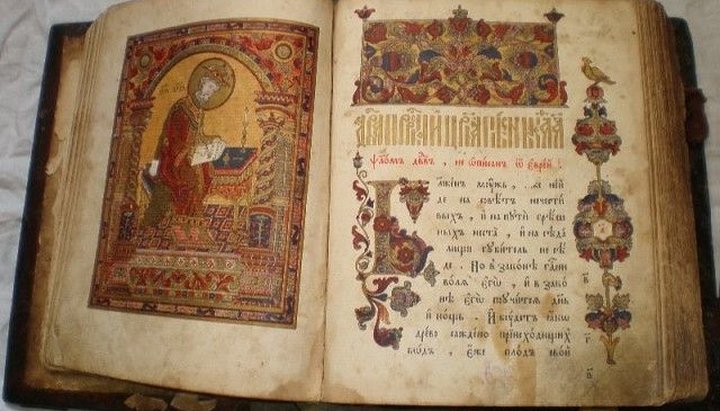 ѱало́мъ дв҃дъ , не ѡ҆писанъ ѿ є҆врей .
на совѣтъ нечести
выхъ , и҆ на пути грѣш
ныхъ не ста , и҆ на сѣда
лищи губитель не сѣ
де . Но в законѣ гд҇ни
воля є҆гѡ̀ , и҆ в зако
нѣ є҆гѡ̀ поучится дн҃ь
и҆ нощь . И҆ будетъ ꙗ҆кѡ
древо саждено при и҆сходищихъ
водъ , є҆же плодъ свой